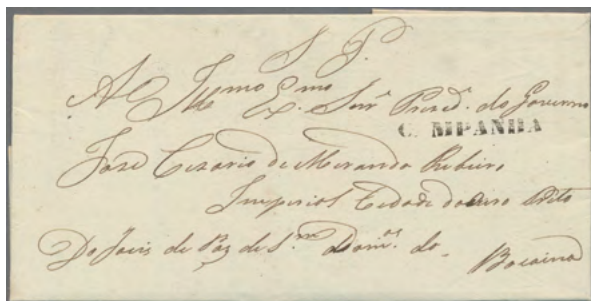 S. P.
Ao Illmo Exmo Senr Presid. do Governo
CAMPANHA
José Cezario de Miranda Ribeiro
Imperial Cidade do Ouro Preto
Do Juis de Paz de S.m Dom.os do Bocaina